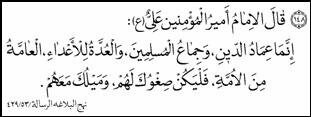 ١٤٨ قَالَ الإمَامُ أَمِيرُ الْمُؤْمِنِينَ عَلِيٌّ (ع):
إِنَّمَا عِمَادُ الدِّينِ، وَجِمَاعُ الْمُسْلِمِينَ، وَالْعُدَّةُ لِلْأَعْدَاءِ، الْعَامَّةُ
مِنَ الْأُمَّةِ، فَلْيَكُنْ صِغْوُكَ لَهُمْ، وَمَيْلُكَ مَعَهُمْ.
نهج البلاغه الرسالة/٤٢٩/٥٣